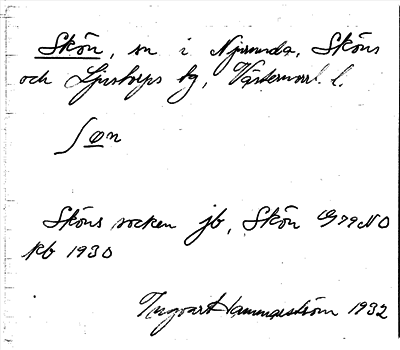 Skön, sn i Njurunda, Sköns
och Ljustorps tg, Västernorrl. l.
ʃøn
Sköns socken jb, Skön G79NO
kb 1930
Ingvar Hammarström 1932